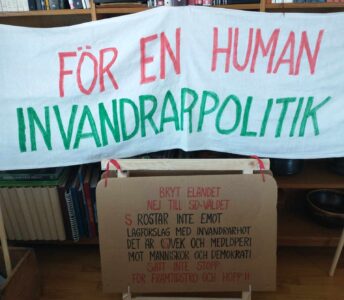 FÖR EN HUMAN
INVANDRARPOLITIK
BRYT ELÄNDET
NEJ TILL SD-VÄLDET
S RÖSTAR INTE EMOT
LAGFÖRSLAG MED INVANDRARHOT
DET ÄR SVEK OCH MEDLÖPERI
MOT MÄNNISKOR OCH DEMOKRATI
SÄTT INTE STOPP
FÖR FRAMTIDSTRO OCH HOPP!!